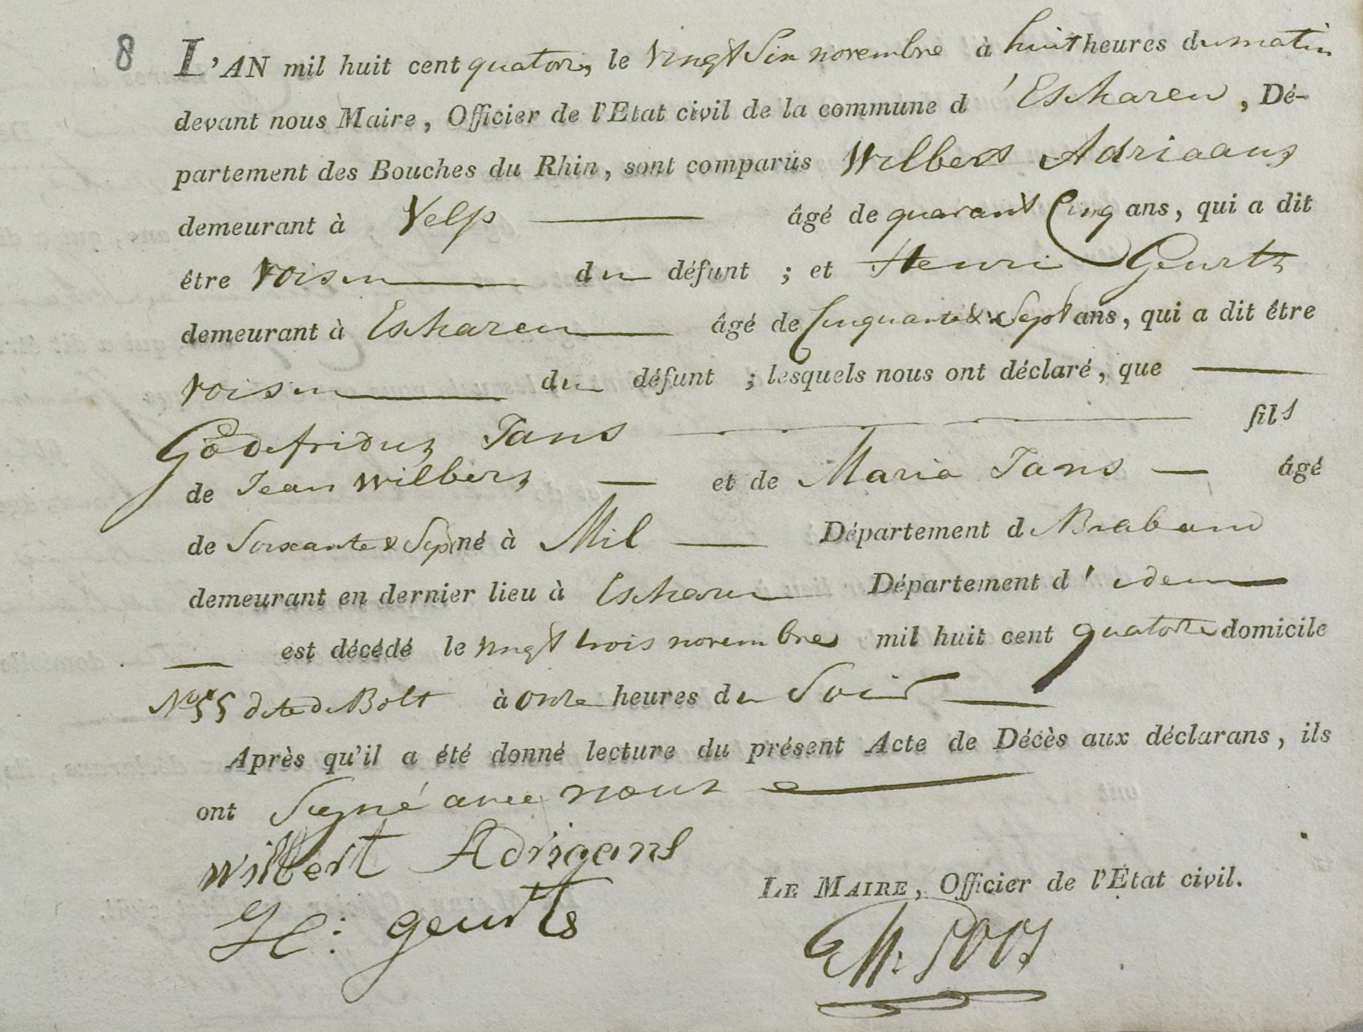 8 L'AN mil huit cent quatorze le vingt Six novembre à huit heures du matin
devant nous Maire, Officier de l'Etat civil de la commune d'Escharen, Dé-
partement des Bouches du Rhin, sont comparus Wilbers Adriaans
demeurant à Velp âgé de quarant Cinq ans, qui a dit
être voisin du défunt ; et Henri Geurts
demeurant à Escharen âgé de Cinquante & Sept ans, qui a dit être
voisin du défunt ; lesquels nous ont déclaré, que
Godefridus Jans fils
de Jean Wilbers et de Maria Jans âgé
de Soixante & Sept né à Mil Département d Braband
demeurant en dernier lieu à Escharen Département d' idem
est décédé le vingt trois novembre mil huit cent quatorze domicile
No 55 dite de Bolt à onze heures du Soir
Après qu'il a été donné lecture du présent Acte de Décès aux déclarans, ils
ont Signé avec nous
Wilbert Adrigans
H: geurts
LE MAIRE, Officier de l'État civil.